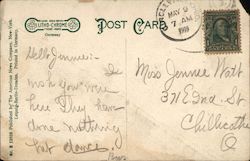 LITHO-CHROME
Germany
POST CARD
MAY 9
7 AM
Hello Jennie: I
wish you were
here They have
done nothing
but dance
Miss Jennie Watt
371 E 2nd. St
Chillicothe
O
Published by The American News Company, New York.
Leipzig-Berlin-Dresden. Printed in Germany.